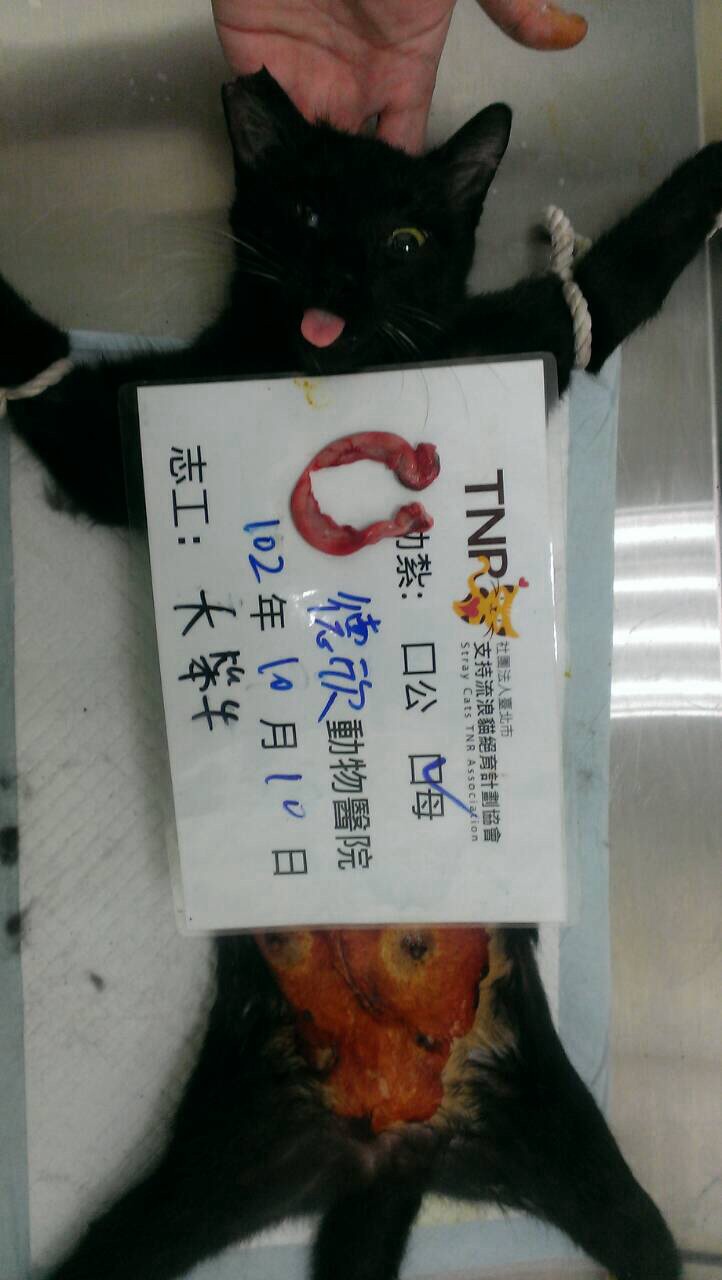 TNR
社團法人臺北市
支持流浪貓絕育計劃協會
Stray Cats TNR Association
紮: 口公 口母
德欣動物醫院
102年10月10日
志工: 大